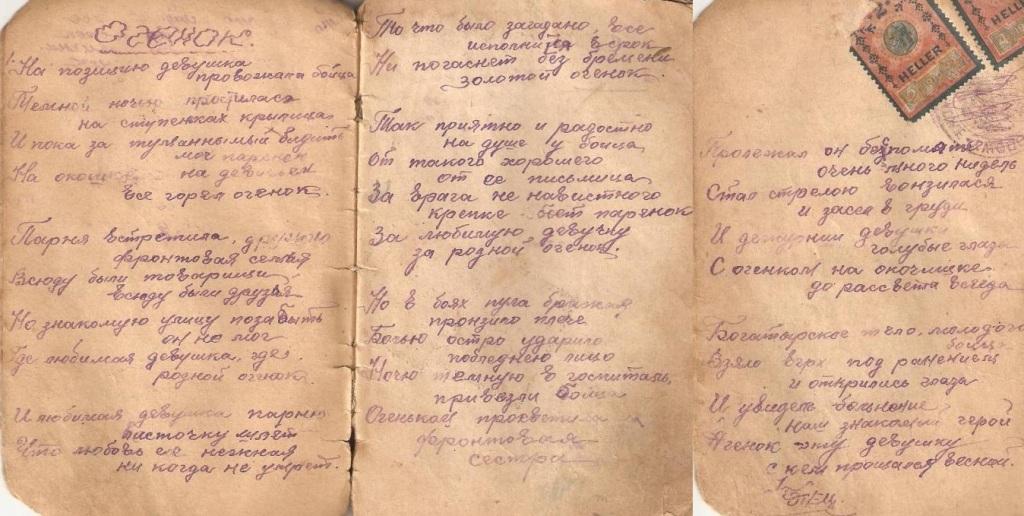 Огенок.
1. На позицию девушка
провожала бойца
Темной ночью простилася
на ступеньках крыльца
И пока за туманными видить
мог паренек
На окошке на девичьем
все горел огенок.
Парня встретила, дружно
фронтовая семья
Всюду были товарищи
всюду были друзья
Но знакомую улицу позабыть
он не мог
Где любимая девушка, где
родной огенок.
И любимая девушка парню
писточку шлет
Что любовь ее нежная
ни когда не умрет.
То что было загадано, все
исполнится в срок
Ни погаснет без времени
золотой огенок.
Так приятно и радостно
на душе у бойца
От такого хорошего
от ее письмица
За врага не навистного
крепче бьет паренок
За любимую девучку
за родной огенок.
Но в боях пуга вражия
пронзило плече
Болью остро ударило
побледнело лицо
Ночю темную в госпиталь
привезли бойца
Огеньком просветила
фронтовая
сестра
HELLER
HELLER
Пролежал он безпомяти
очень много недель
Стал стрелою вонзилася
и засела в груди
И дежурнии девушки
голубые глаза
С огенком на окочшке
до рассвета всегда
Богатырское тело, молодого
бойца
Взяло верх под ранением
и открились глаза
И увидель больнение
наш знакомий герой
Огенок эту девушку
с кем прощался весной.